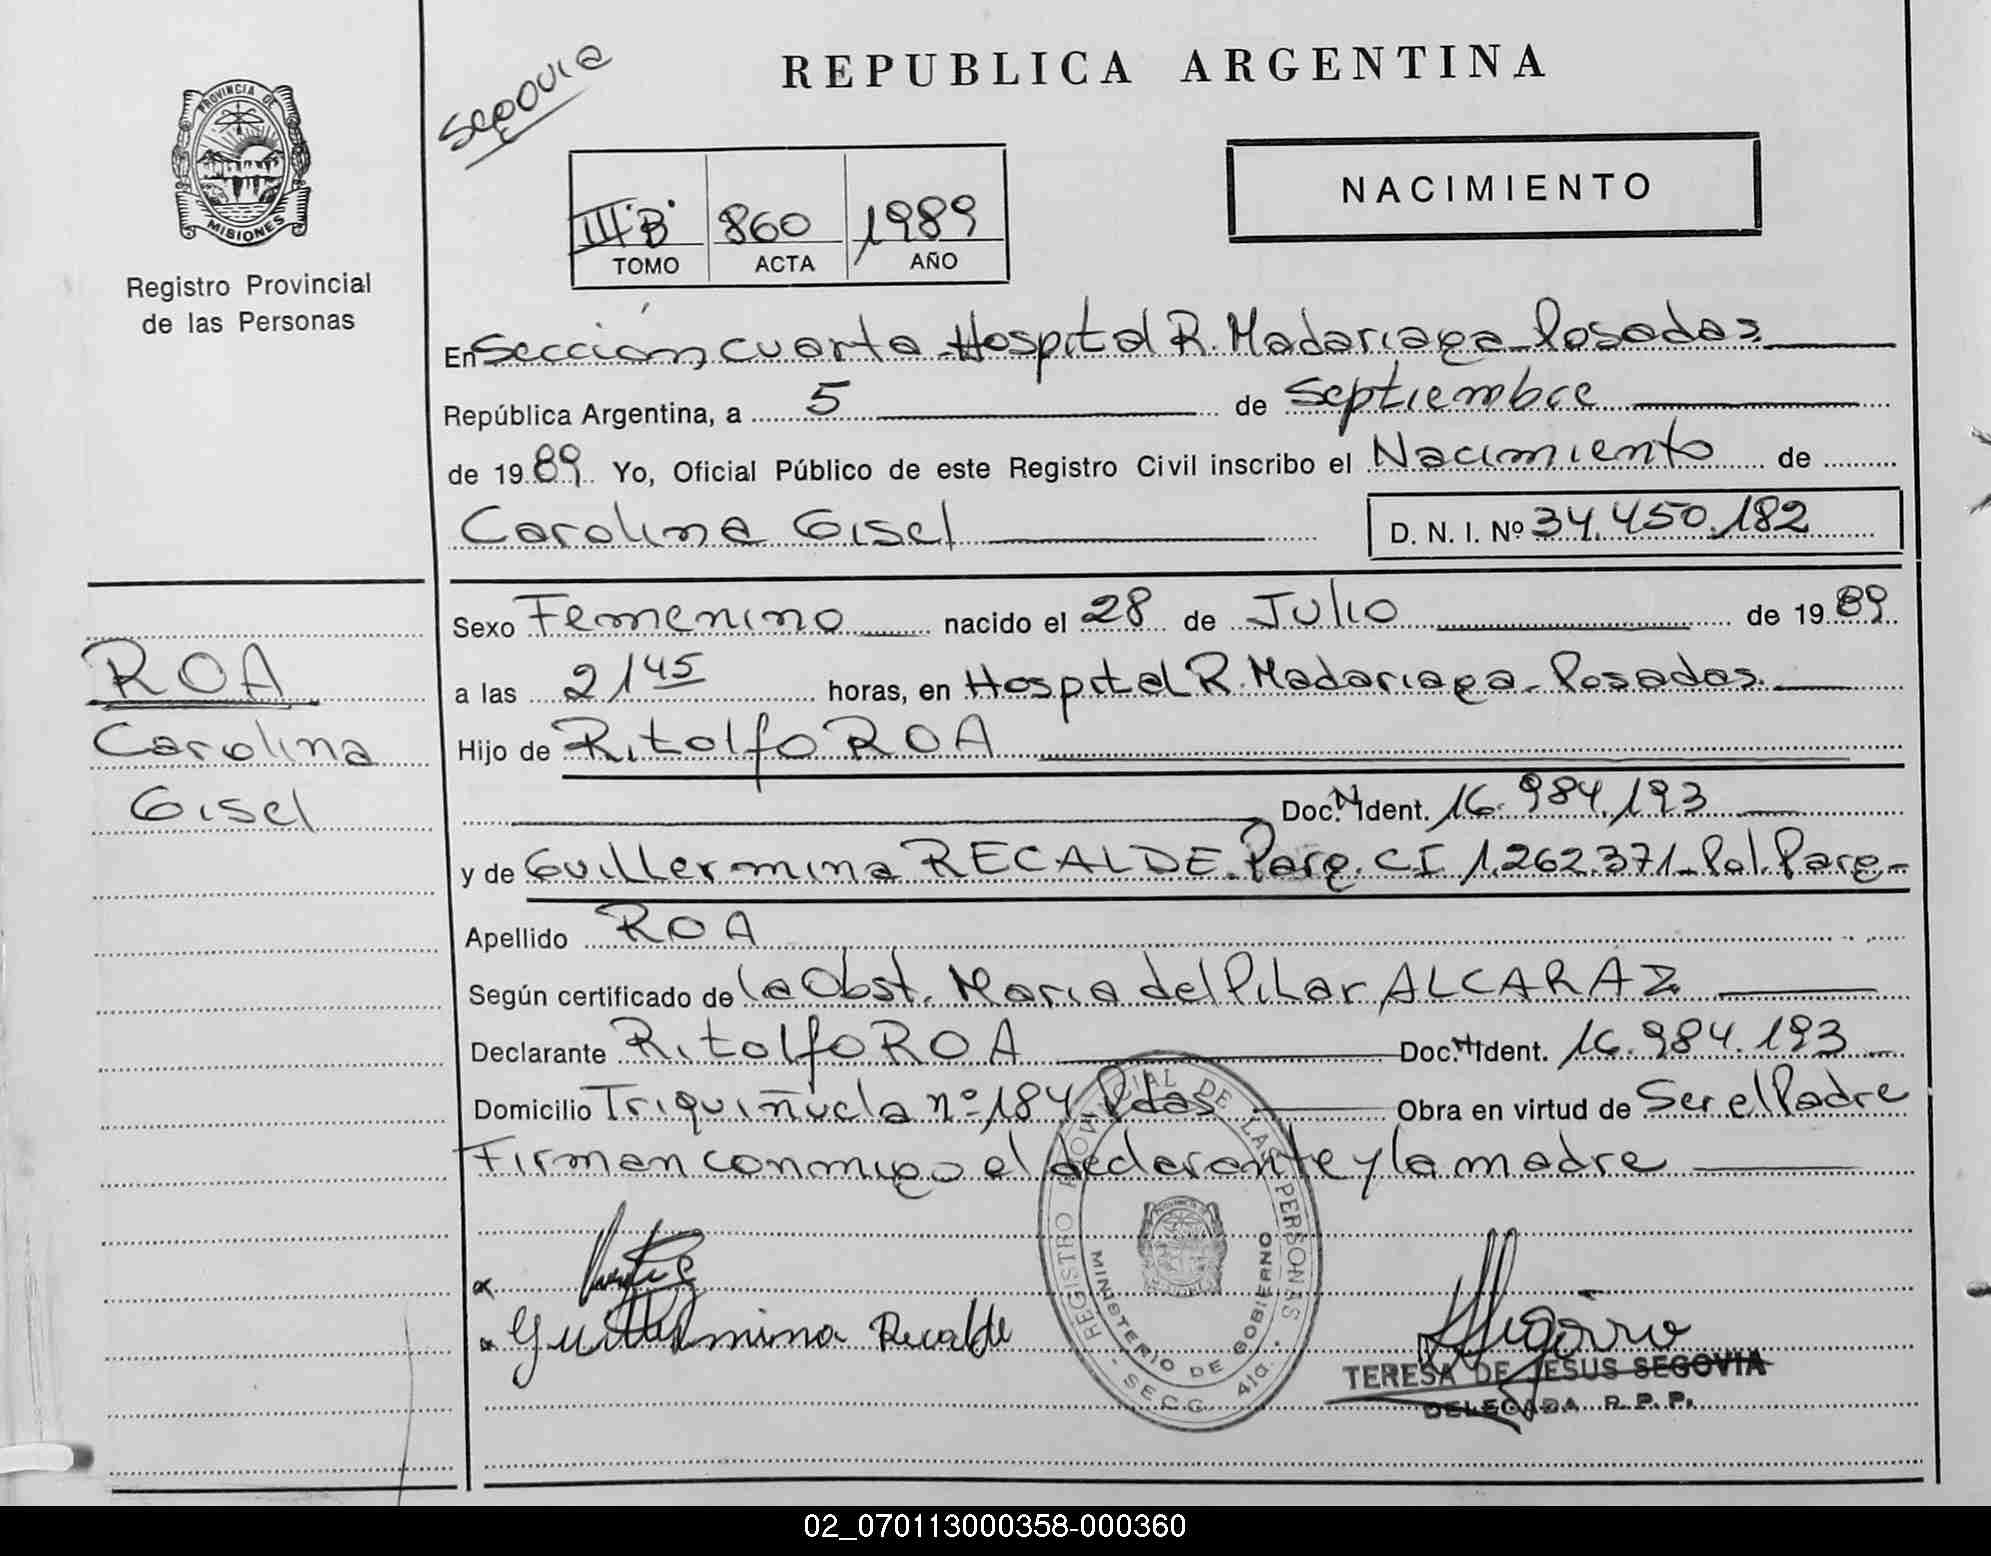 Segovia
REPUBLICA ARGENTINA
PROVINCIA DE MISIONES
Registro Provincial
de las Personas
III "B" 860 1989
TOMO ACTA AÑO
NACIMIENTO
En Sección cuarta - Hospital R. Madariaga - Posadas
República Argentina, a 5 de Septiembre
de 1989. Yo, Oficial Público de este Registro Civil inscribo el Nacimiento de
Carolina Gisel D. N. I. Nº 34.450.182
Sexo Femenino nacido el 28 de Julio de 1989
a las 21 45 horas, en Hospital R. Madariaga - Posadas.
Hijo de Ritolfo ROA
Doc. N. Ident. 16.984.193
y de Guillermina RECALDE - Parg. CI 1.262.371 - Pol. Parg -
Apellido ROA
Según certificado de la Obst. Maria del Pilar ALCARAZ
Declarante Ritolfo ROA Doc. N. Ident. 16.984.193
Domicilio Triquiñuela nº 184 - Pdas Obra en virtud de Ser el Padre
Firman conmigo el declarante y la madre
ROA
Carolina
Gisel
Guillermina Recalde
REGISTRO PROVINCIAL DE LAS PERSONAS
MINISTERIO DE GOBIERNO
SECC. 4ta.
TERESA DE JESUS SEGOVIA
DELEGADA R. P. P.
02_070113000358-000360